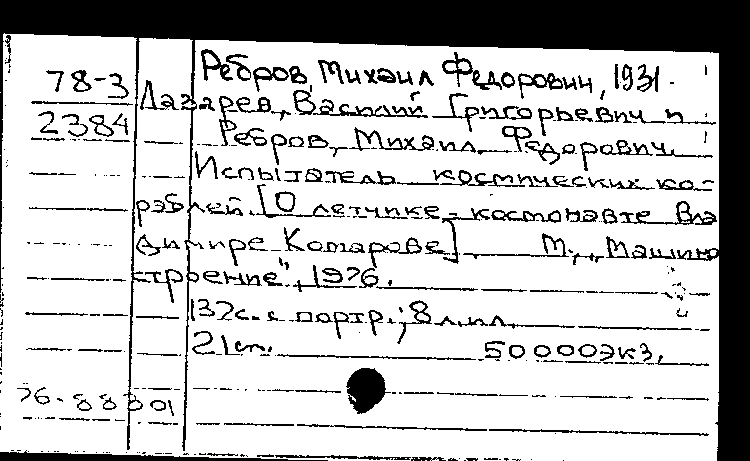 Ребров, Михаил Федорович, 1931-
78-3
Лазарев, Василий Григорьевич и
2384
Ребров, Михаил Федорович.
Испытатель космических ко-
раблей. [О летчике-космонавте Вла
димире Комарове]. М., "Машино
строение", 1976.
137с. с портр.; 8 л.ил.
21 см. 50000экз.
76-88801